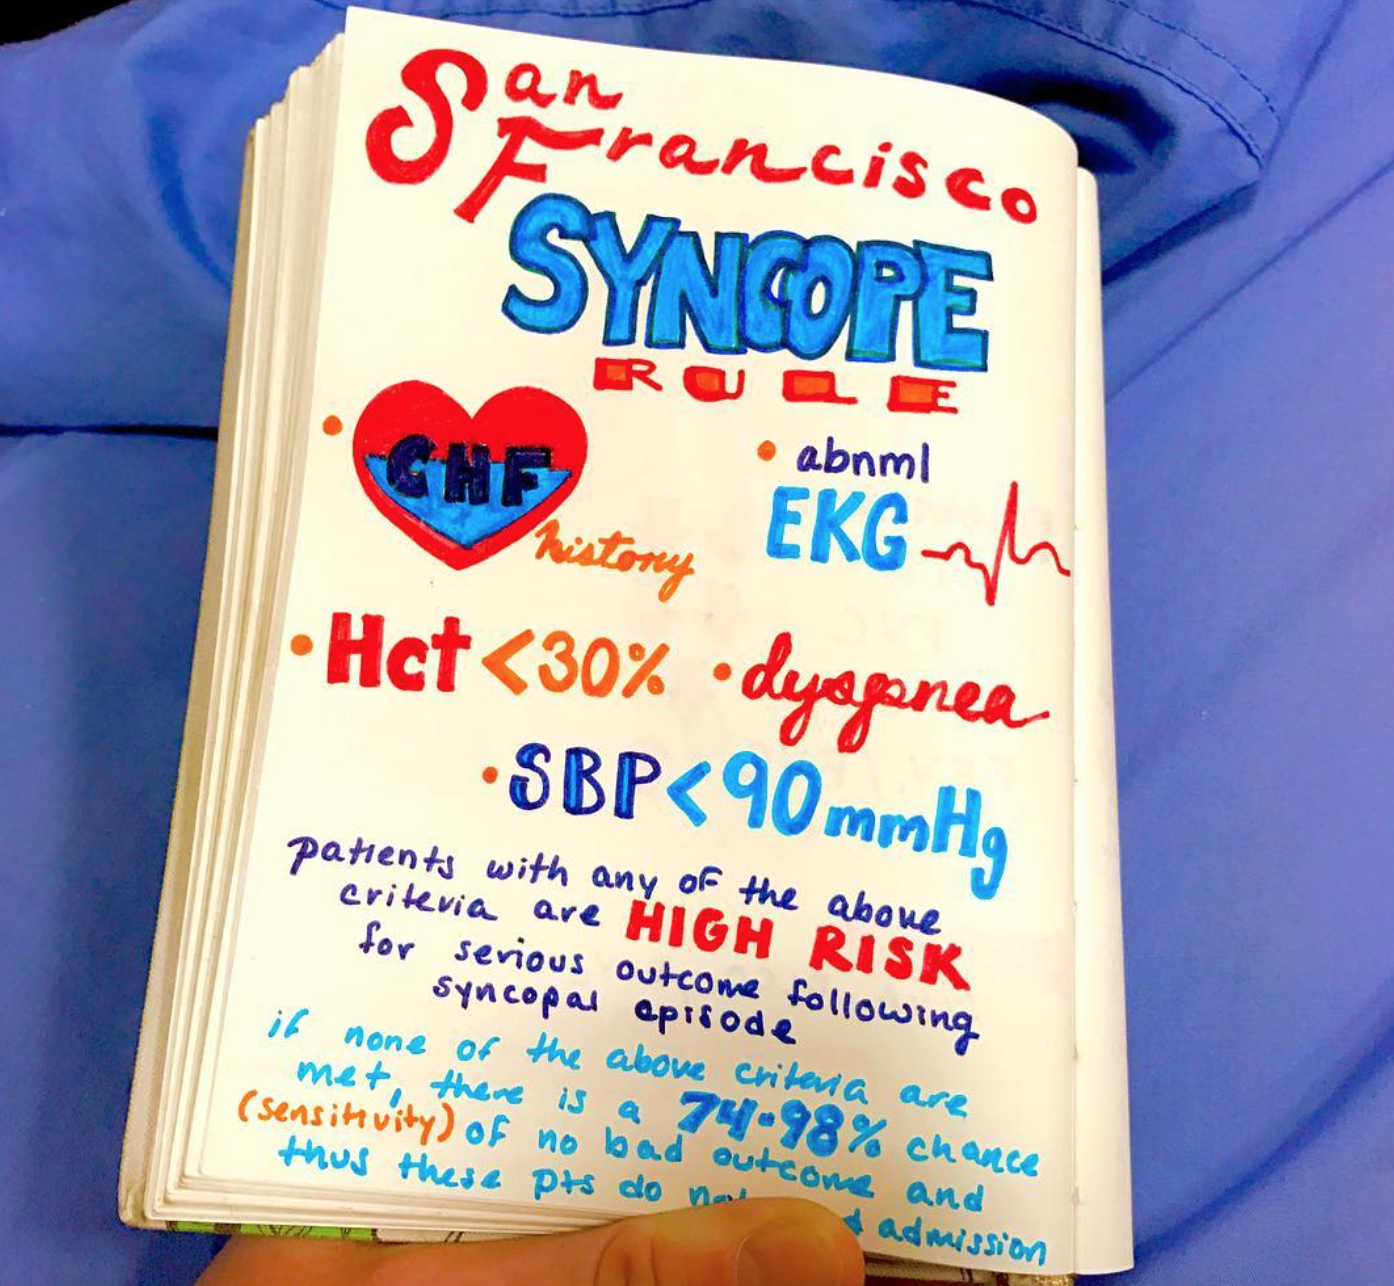 San
Francisco
SYNCOPE
RULE
• CHF
history
• abnml
EKG
• Hct <30%
• dyspnea
• SBP < 90 mmHg
patients with any of the above
criteria are HIGH RISK
for serious outcome following
syncopal episode
if none of the above criteria are
met, there is a 74-98% chance
(sensitivity) of no bad outcome and
thus these pts do admission